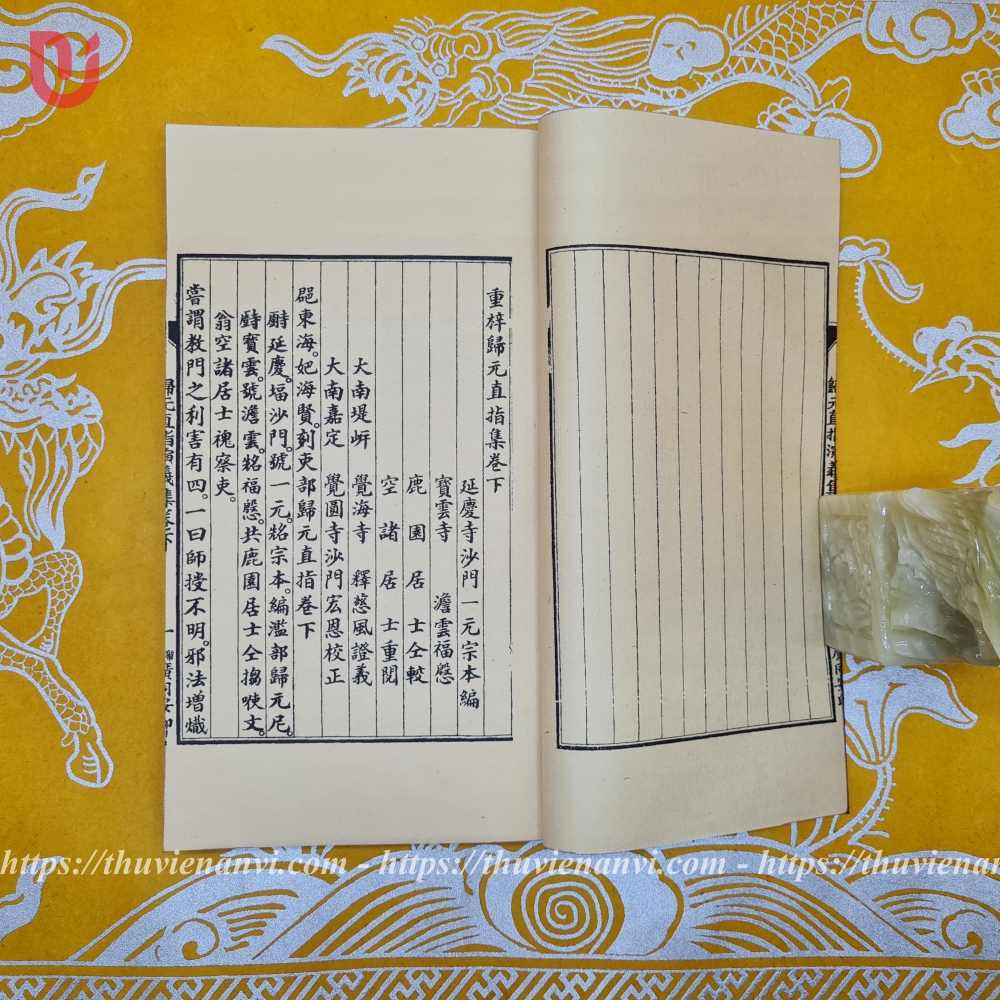 重梓歸元直指集卷下
延慶寺沙門一元宗本編
寶雲寺 澹雲福慇
鹿園居士仝較
空諸居士重閱
大南堤岍 覺海寺 釋慈風證義
大南嘉定 覺圓寺沙門宏恩校正
𨕭東海。妑海賢。刻吏部歸元直指卷下
延慶。堛沙門。號一元。𠸜宗本。編濫部歸元尼。
寶雲。號澹雲。𠸜福慇。共鹿園居士仝搊
翁空諸居士槐察吏。
嘗謂教門之利害有四。一曰師授不明。邪法增熾
歸元直指演義集卷下
一
歸元直指演義集
https://thuvienanvi.com - https://thuvienanvi.com - https://thuvienan